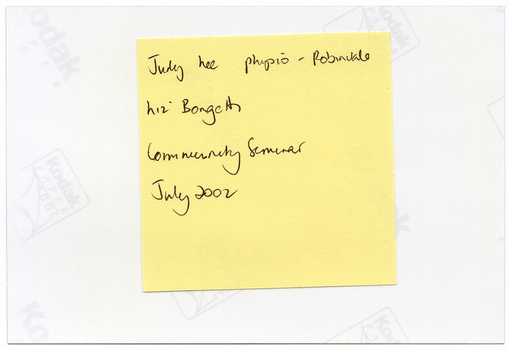 Judy Lee physio - Robinvale
Liz Bongetti
Community Seminar
July 2002
Kodak
Kodak
Kodak
Kodak